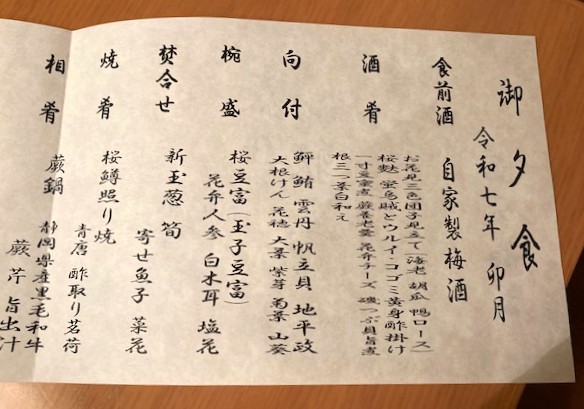 御夕食
令和七年 卯月
食前酒 自家製梅酒
酒肴
お花見三色団子見立て(海老 胡瓜 鴨ロース)
桜麩 蛍烏賊とウルイ・コゴミ黄身酢掛け
一寸豆蜜煮 蕨養老寄 花弁チーズ 磯つぶ貝旨煮
根三つ葉白和え
向付
鮃 鮪 雲丹 帆立貝 地平政
大根けん 花穂 大葉 紫芽 菊葉 山葵
椀盛
桜豆富(玉子豆富)
花弁人参 白木耳 塩花
焚合せ
新玉葱 筍
寄せ魚子 菜花
焼肴
桜鱒照り焼
青唐 酢取り茗荷
相肴
蕨鍋 静岡県産黒毛和牛
蕨 芹 旨出汁